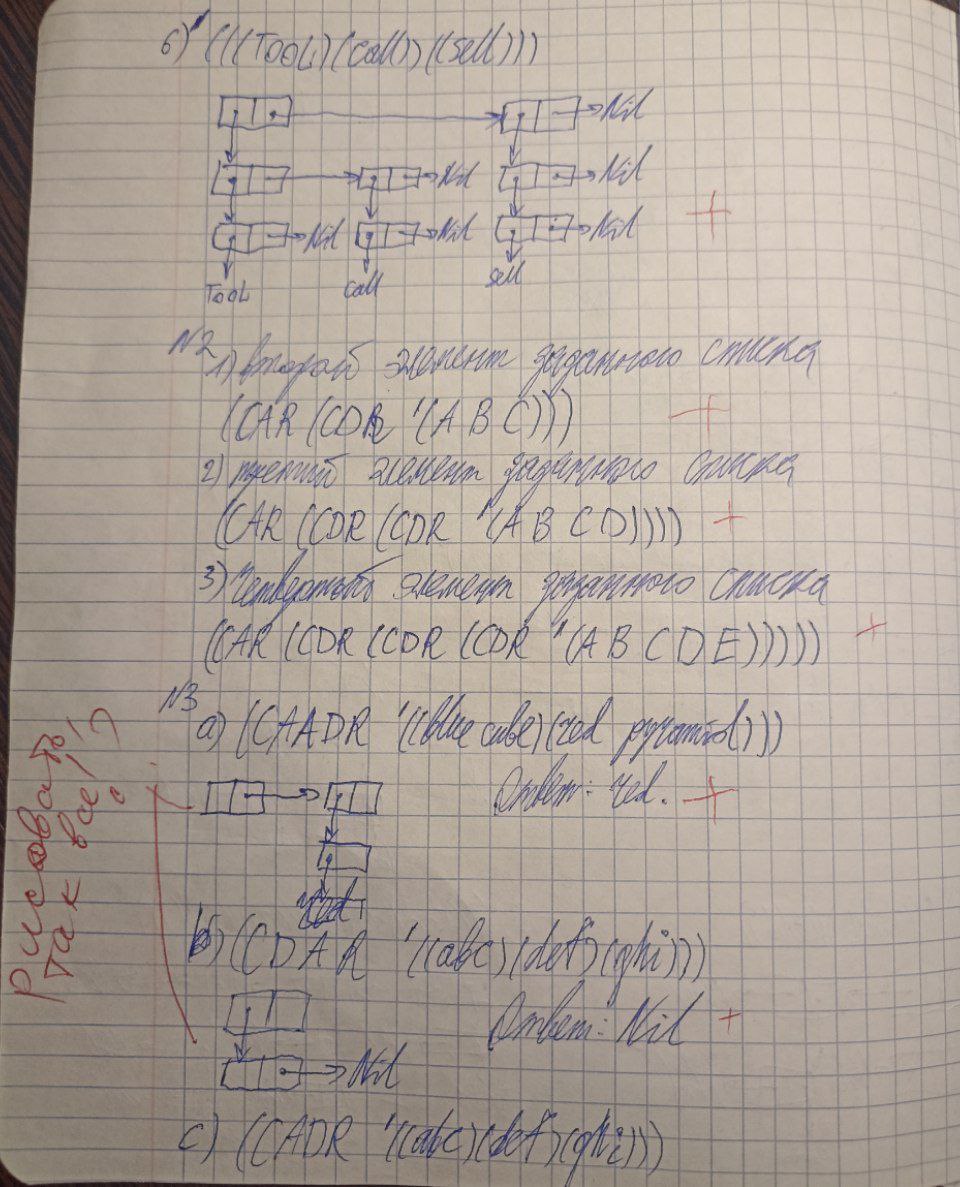 6) '(((TOOL)(call))((sell)))
Nil
Nil Nil
Nil Nil Nil
TOOL call sell
N2
1) второй элемент заданного списка
(CAR (CDR '(A B C)))
+
2) третий элемент заданного списка
(CAR (CDR (CDR '(A B C D))))
+
3) Четвертый элемент заданного списка
(CAR (CDR (CDR (CDR '(A B C D E)))))
+
N3
a) (CAADR '((blue cube)(red pyramid)))
Ответ: red.
+
red
рисовать
так все!
b) (CDAR '((abc)(def)(ghi)))
Ответ: Nil
+
Nil
c) (CADR '((abc)(def)(ghi)))